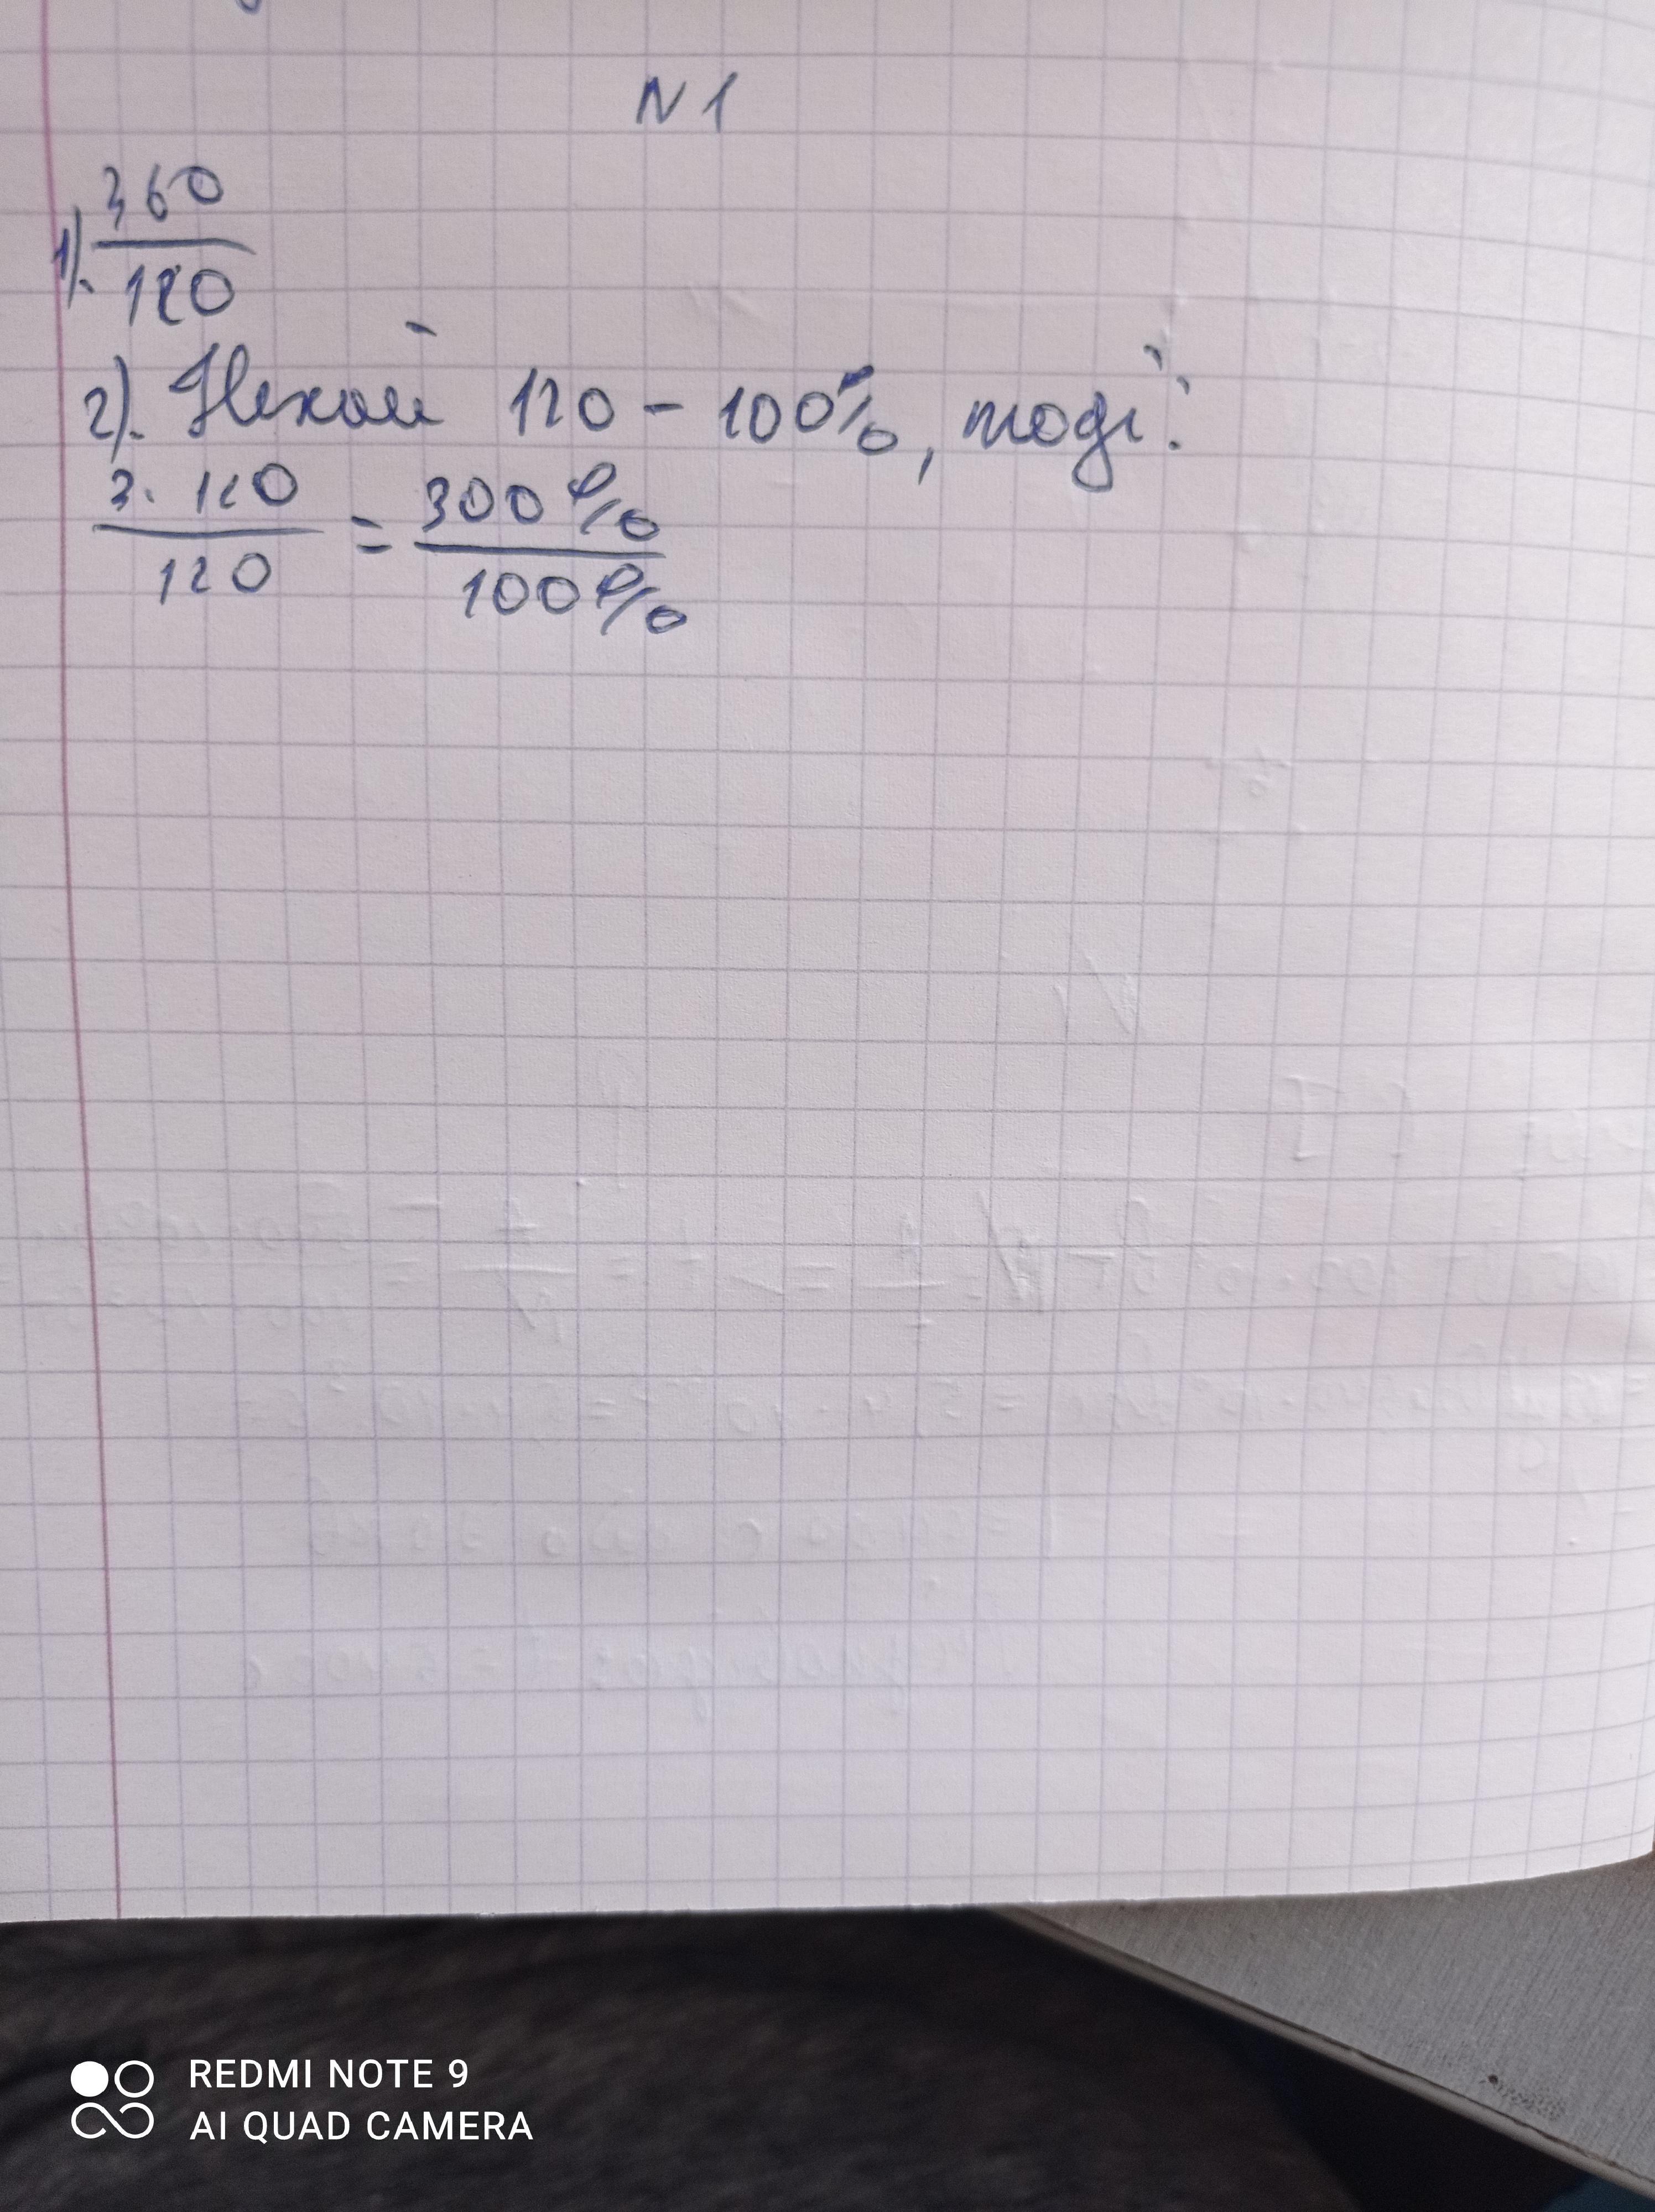 N 1
1). 360
120
2). Нехай 120 - 100%, тоді:
3. 120 = 300%
120 100%
REDMI NOTE 9
AI QUAD CAMERA